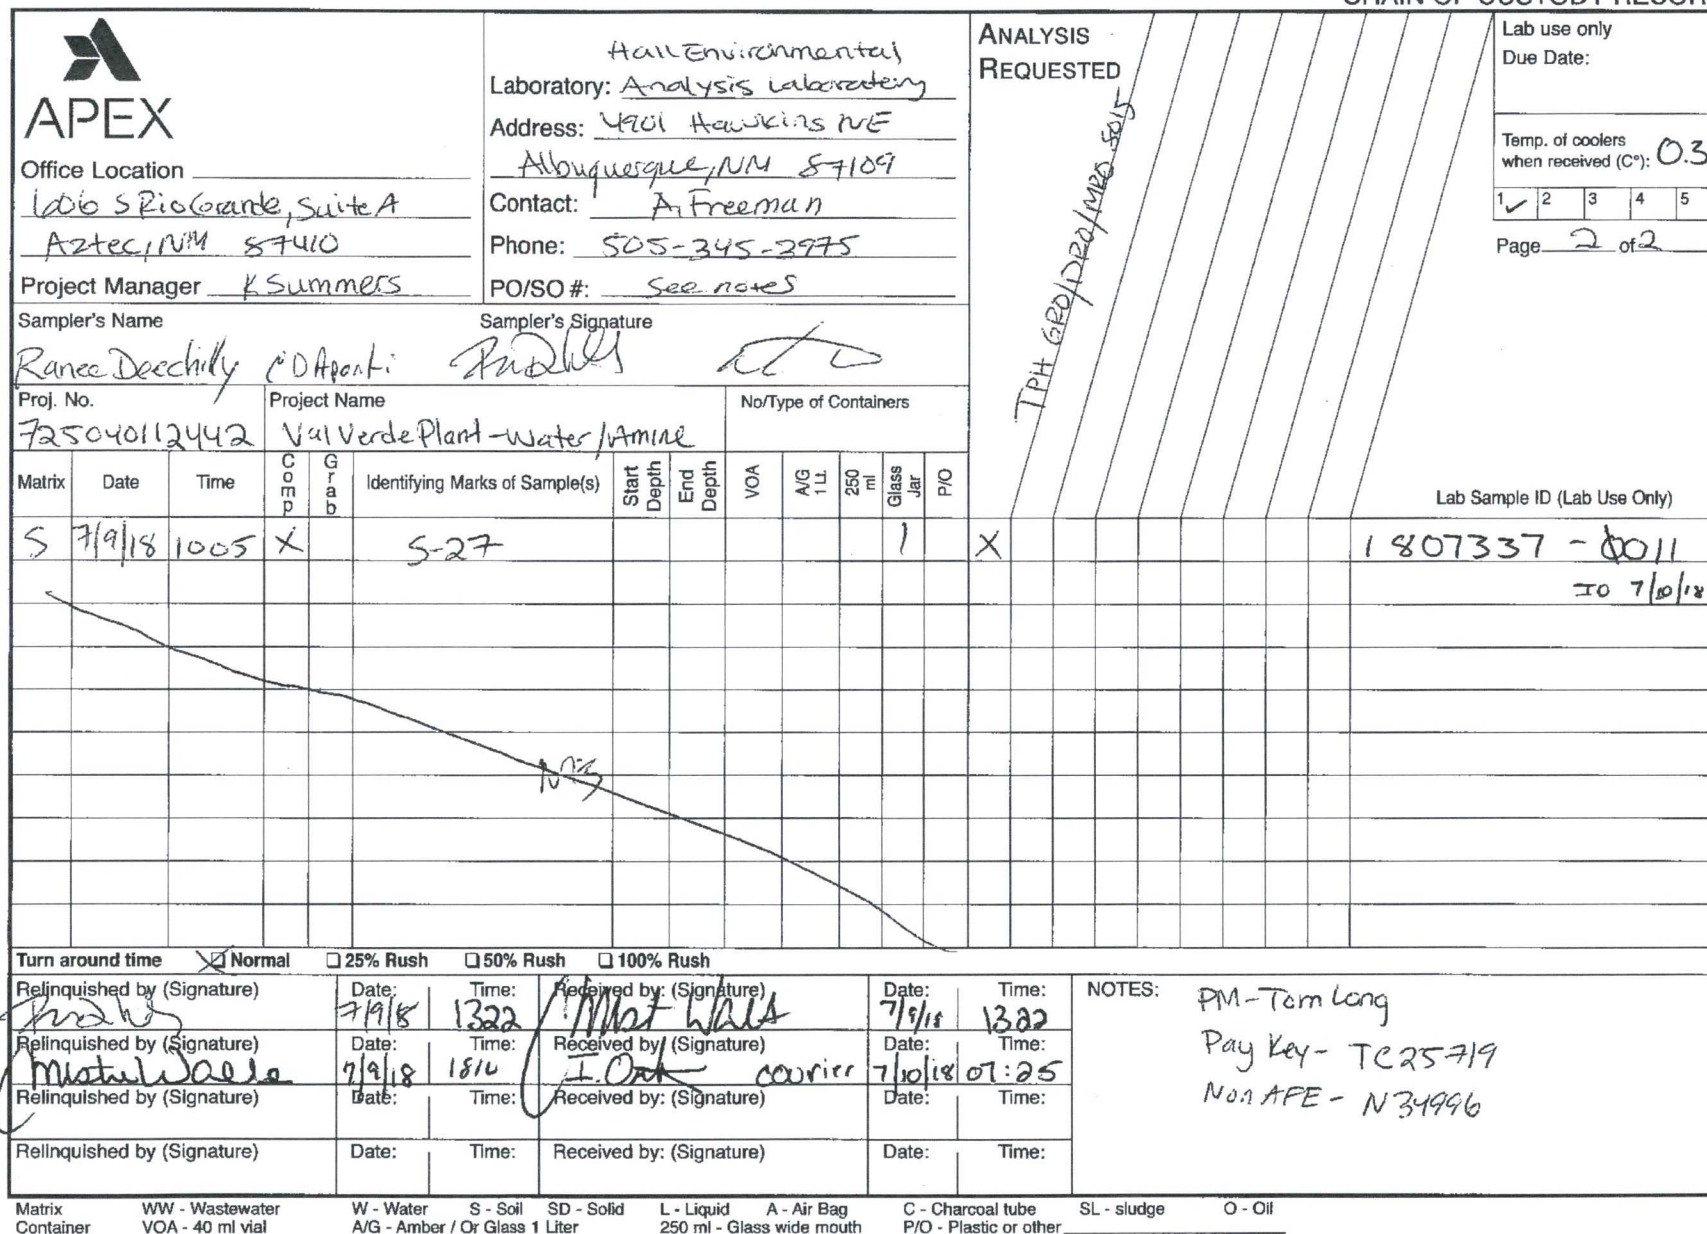 CHAIN OF CUSTODY RECORD
APEX
Office Location
606 S Rio Grande, Suite A
Aztec, NM 87410
Project Manager K Summers
Hall Environmental
Laboratory: Analysis Laboratory
Address: 4901 Hawkins NE
Albuquerque, NM 87109
Contact: A. Freeman
Phone: 505-345-3975
PO/SO #: See notes
ANALYSIS
REQUESTED
TPH GRO/DRO/MRO 8015
Lab use only
Due Date:
Temp. of coolers
when received (C°): 0.3
1 ✓ 2 3 4 5
Page 2 of 2
Sampler's Name
Ranee Deechilly
Sampler's Signature
Proj. No.
725040112442
Project Name
Val Verde Plant - Water / Amine
No/Type of Containers
Matrix Date Time Comp Grab Identifying Marks of Sample(s) Start Depth End Depth VOA A/G 1 Lt. 250 ml Glass Jar P/O
Lab Sample ID (Lab Use Only)
S 7/9/18 1005 X S-27 1 X 1807337 - 0011
IO 7/10/18
Turn around time Normal 25% Rush 50% Rush 100% Rush
Relinquished by (Signature) Date: Time: Received by: (Signature) Date: Time:
7/9/18 1322 7/9/18 1322
Relinquished by (Signature) Date: Time: Received by: (Signature) Date: Time:
7/9/18 courier 7/10/18 07:25
Relinquished by (Signature) Date: Time: Received by: (Signature) Date: Time:
Relinquished by (Signature) Date: Time: Received by: (Signature) Date: Time:
NOTES: PM - Tom Long
Pay Key - TC25719
Non AFE - N34996
Matrix WW - Wastewater W - Water S - Soil SD - Solid L - Liquid A - Air Bag C - Charcoal tube SL - sludge O - Oil
Container VOA - 40 ml vial A/G - Amber / Or Glass 1 Liter 250 ml - Glass wide mouth P/O - Plastic or other